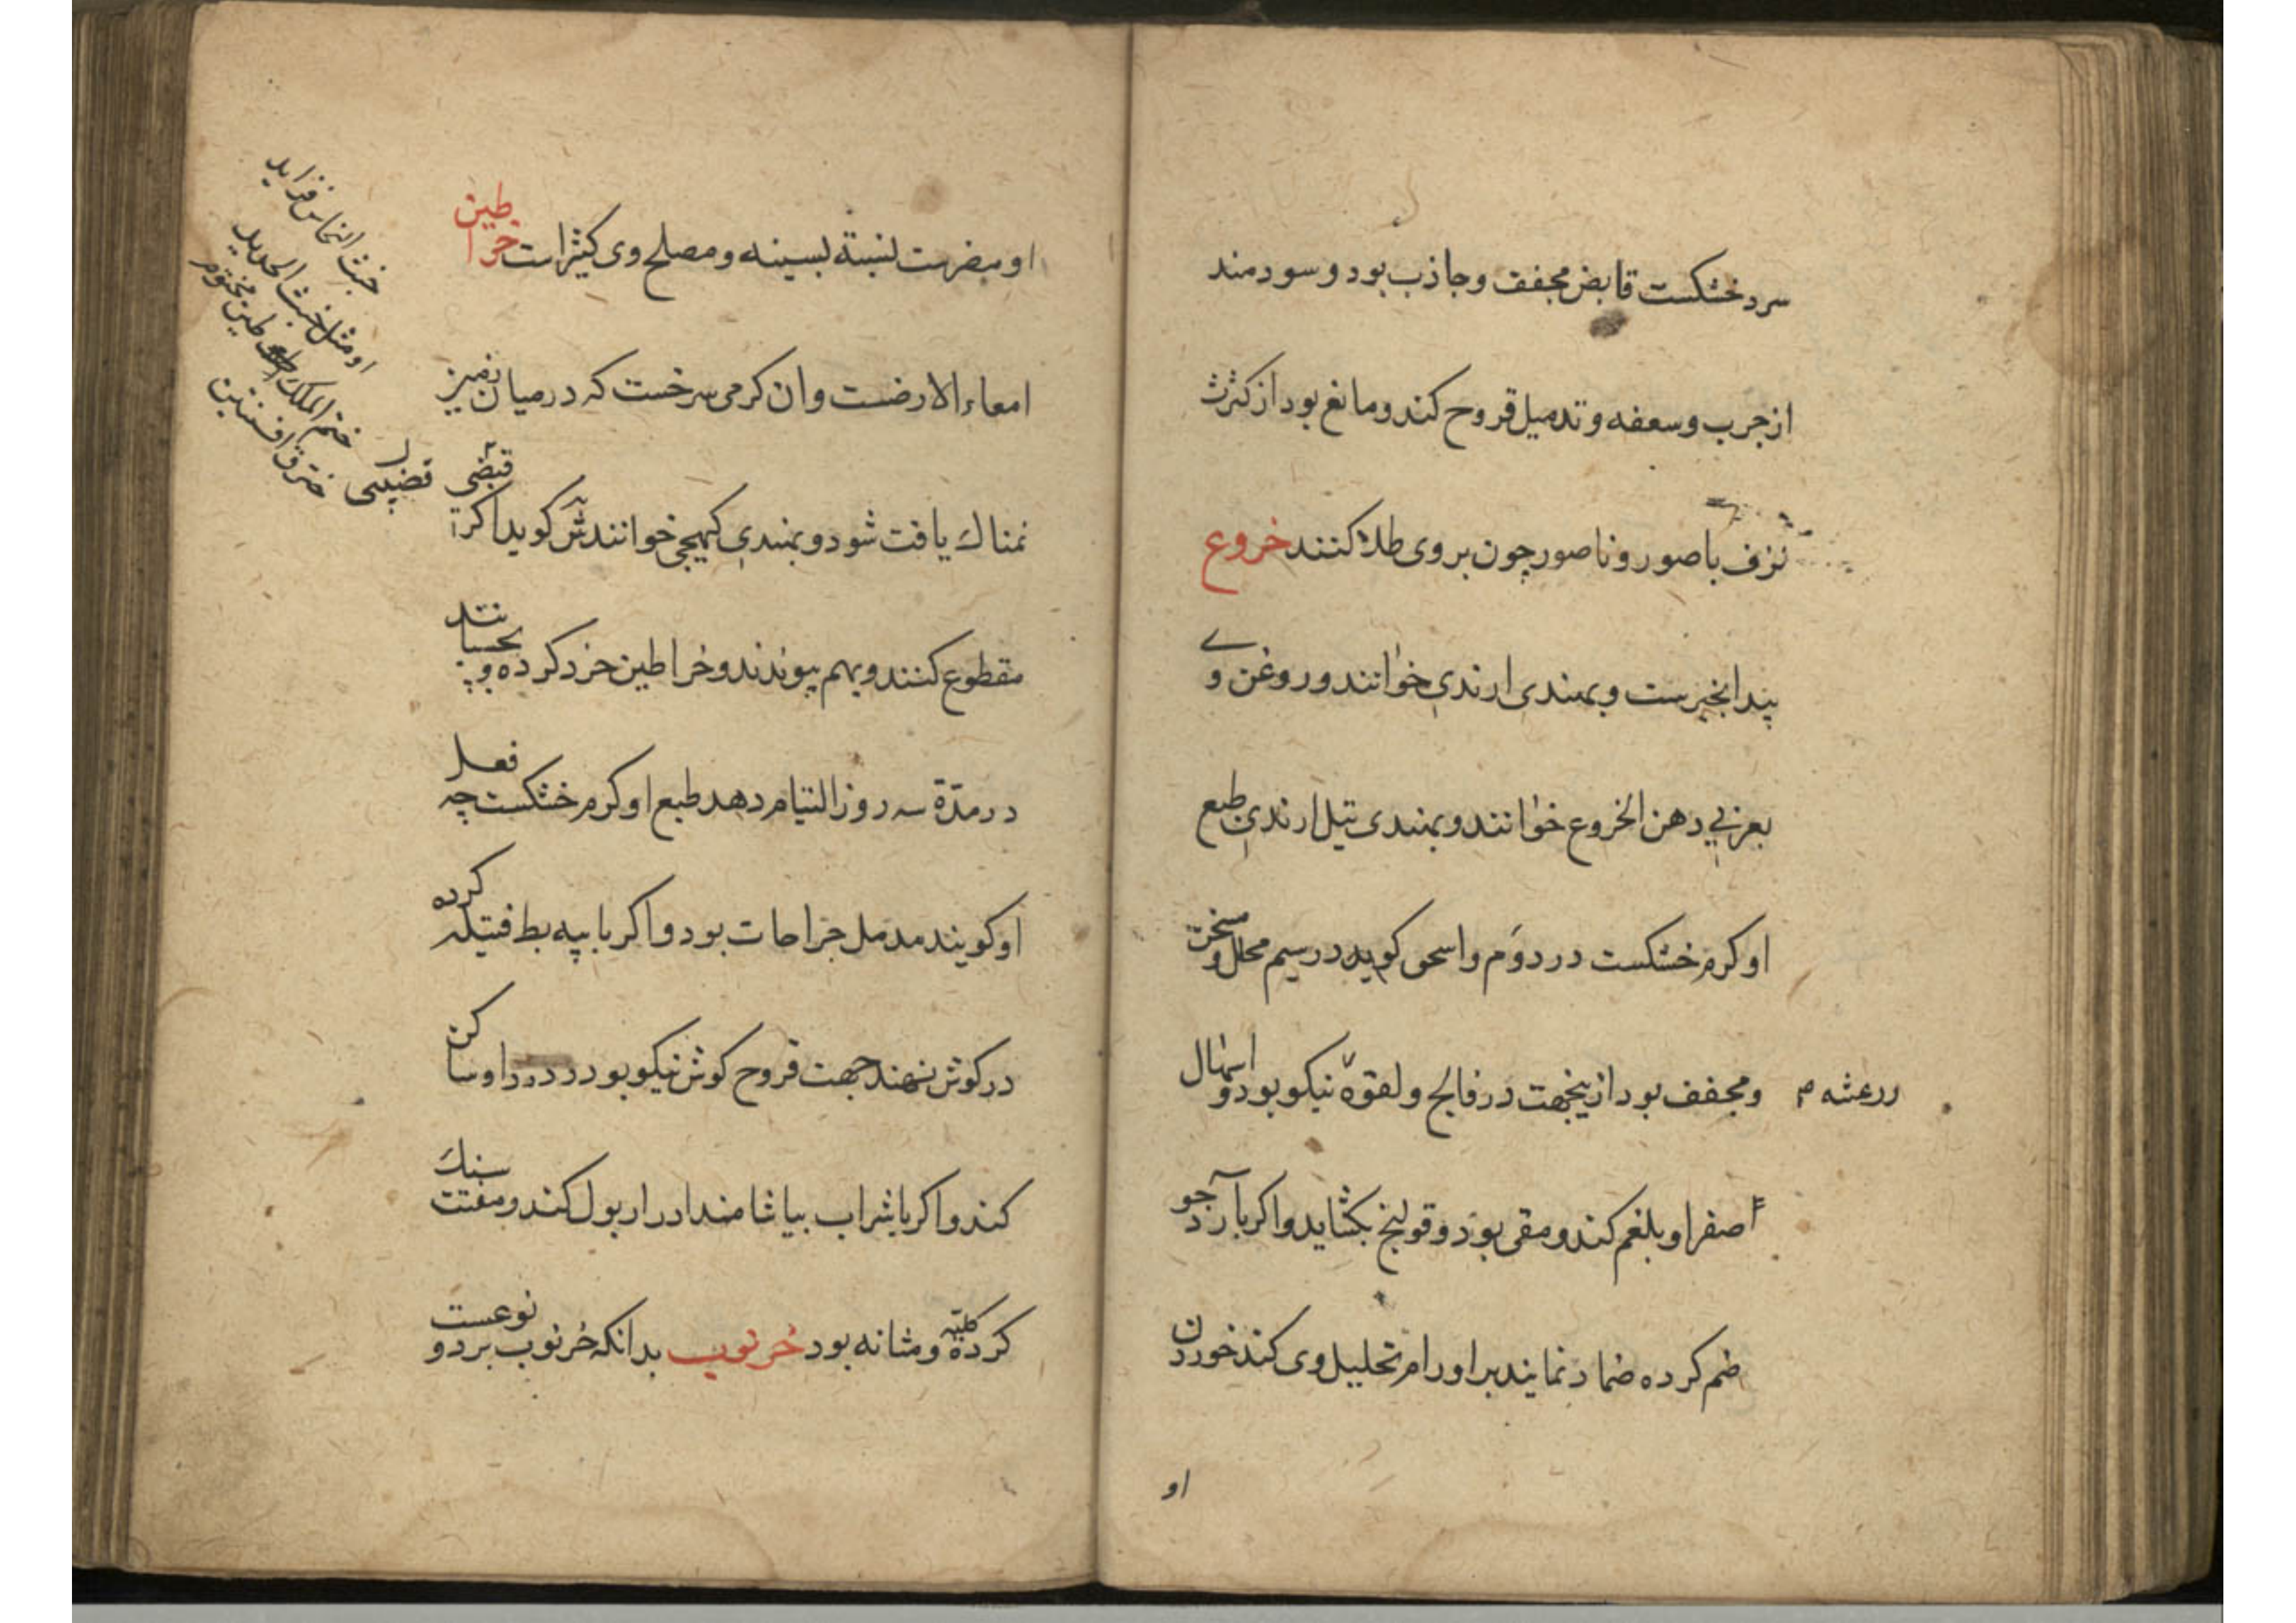 سرد خشکست قابض مجفف و جاذب بود و سودمند
از جرب و سعفه و تدمیل قروح کند و مانع بود از کثرت
نزف باصور و ناصور چون بروی طلا کنند خروع
پیدانجیرست و بهندی ارندی خوانند و روغن وے
بعربی دهن الخروع خوانند و بهندی تیل ارندی طبع
او کرم خشکست در دوم و اسحق کوید در سیم محلل و مسخن
و مجفف بود ازینجهت در فالج و لقوه نیکو بود و اسهال
ررعشه م
صفرا و بلغم کند و مقی بود و قولنج بکشاید و اکر با آرد جو
ضم کرده ضماد نمایند بر اورام تحلیل وی کند خوردن
او
او مضرست بسینه و مصلح وی کثیرا است خراطین
امعاء الارضست و ان کرمی سرخست که در میان زمین
نمناك یافت شود و بهندی کیهچی خوانند کوید اکر
قضیبی
مقطوع کنند و بهم پیوندند و خراطین خرد کرده و بچسبانند
در مدّة سه روز التیام دهد طبع او کرم خشکست چه فعل
او کویند مدمل جراحات بود و اکر با پیه بط فتیله کرده
در کوش نهند جهت قروح کوش نیکو بود و درد او ساکن
کند و اکر با شراب بیاشامند ادرار بول کند و مفتت سنك
کرده و مثانه بود خرنوب بدانکه خرنوب بر دو نوعست
خبث النحاس فزاید
او مثل خبث الحدید
ختم الملك طین مختوم
خترق افسنتین